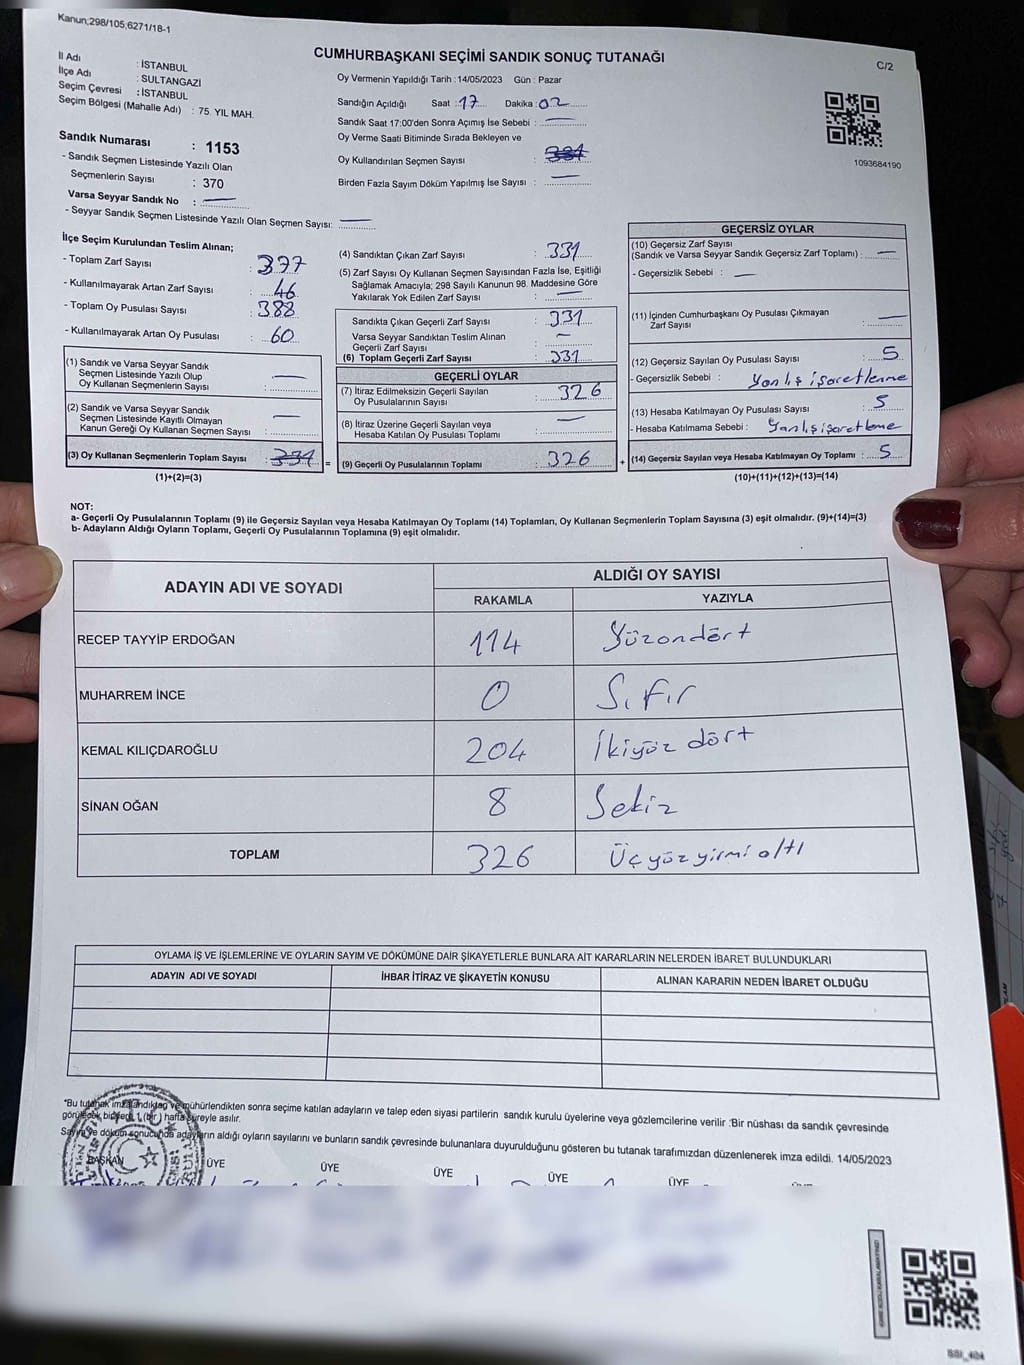 Kanun;298/105;6271/18-1
CUMHURBAŞKANI SEÇİMİ SANDIK SONUÇ TUTANAĞI
C/2
İl Adı : İSTANBUL
İlçe Adı : SULTANGAZİ
Seçim Çevresi : İSTANBUL
Seçim Bölgesi (Mahalle Adı) : 75. YIL MAH.
Oy Vermenin Yapıldığı Tarih :14/05/2023 Gün : Pazar
Sandığın Açıldığı Saat :17 Dakika :02
Sandık Saat 17:00'den Sonra Açımış İse Sebebi : —
Oy Verme Saati Bitiminde Sırada Bekleyen ve
Oy Kullandırılan Seçmen Sayısı :
Birden Fazla Sayım Döküm Yapılmış İse Sayısı : —
1093684190
Sandık Numarası : 1153
- Sandık Seçmen Listesinde Yazılı Olan
Seçmenlerin Sayısı : 370
Varsa Seyyar Sandık No : —
- Seyyar Sandık Seçmen Listesinde Yazılı Olan Seçmen Sayısı: —
İlçe Seçim Kurulundan Teslim Alınan;
- Toplam Zarf Sayısı : 377
- Kullanılmayarak Artan Zarf Sayısı : 46
- Toplam Oy Pusulası Sayısı : 388
- Kullanılmayarak Artan Oy Pusulası : 60
(1) Sandık ve Varsa Seyyar Sandık
Seçmen Listesinde Yazılı Olup
Oy Kullanan Seçmenlerin Sayısı : —
(2) Sandık ve Varsa Seyyar Sandık
Seçmen Listesinde Kayıtlı Olmayan
Kanun Gereği Oy Kullanan Seçmen Sayısı : —
(3) Oy Kullanan Seçmenlerin Toplam Sayısı : 331 =
(1)+(2)=(3)
(4) Sandıktan Çıkan Zarf Sayısı : 331
(5) Zarf Sayısı Oy Kullanan Seçmen Sayısından Fazla İse, Eşitliği
Sağlamak Amacıyla; 298 Sayılı Kanunun 98. Maddesine Göre
Yakılarak Yok Edilen Zarf Sayısı : —
Sandıkta Çıkan Geçerli Zarf Sayısı : 331
Varsa Seyyar Sandıktan Teslim Alınan
Geçerli Zarf Sayısı : —
(6) Toplam Geçerli Zarf Sayısı : 331
GEÇERLİ OYLAR
(7) İtiraz Edilmeksizin Geçerli Sayılan
Oy Pusulalarının Sayısı : 326
(8) İtiraz Üzerine Geçerli Sayılan veya
Hesaba Katılan Oy Pusulası Toplamı : —
(9) Geçerli Oy Pusulalarının Toplamı : 326 +
GEÇERSİZ OYLAR
(10) Geçersiz Zarf Sayısı
(Sandık ve Varsa Seyyar Sandık Geçersiz Zarf Toplamı) : —
- Geçersizlik Sebebi : —
(11) İçinden Cumhurbaşkanı Oy Pusulası Çıkmayan
Zarf Sayısı : —
(12) Geçersiz Sayılan Oy Pusulası Sayısı : 5
- Geçersizlik Sebebi : Yanlış işaretlenme
(13) Hesaba Katılmayan Oy Pusulası Sayısı : 5
- Hesaba Katılmama Sebebi : Yanlış işaretleme
(14) Geçersiz Sayılan veya Hesaba Katılmayan Oy Toplamı : 5
(10)+(11)+(12)+(13)=(14)
NOT:
a- Geçerli Oy Pusulalarının Toplamı (9) ile Geçersiz Sayılan veya Hesaba Katılmayan Oy Toplamı (14) Toplamları, Oy Kullanan Seçmenlerin Toplam Sayısına (3) eşit olmalıdır. (9)+(14)=(3)
b- Adayların Aldığı Oyların Toplamı, Geçerli Oy Pusulalarının Toplamına (9) eşit olmalıdır.
ADAYIN ADI VE SOYADI ALDIĞI OY SAYISI
RAKAMLA YAZIYLA
RECEP TAYYİP ERDOĞAN 114 Yüzondört
MUHARREM İNCE 0 Sıfır
KEMAL KILIÇDAROĞLU 204 İkiyüz dört
SİNAN OĞAN 8 Sekiz
TOPLAM 326 Üçyüz yirmi altı
OYLAMA İŞ VE İŞLEMLERİNE VE OYLARIN SAYIM VE DÖKÜMÜNE DAİR ŞİKAYETLERLE BUNLARA AİT KARARLARIN NELERDEN İBARET BULUNDUKLARI
ADAYIN ADI VE SOYADI İHBAR İTİRAZ VE ŞİKAYETİN KONUSU ALINAN KARARIN NEDEN İBARET OLDUĞU
"Bu tutanak imzalandıktan ve mühürlendikten sonra seçime katılan adayların ve talep eden siyasi partilerin sandık kurulu üyelerine veya gözlemcilerine verilir :Bir nüshası da sandık çevresinde
görülecek bir yere 1 (bir) hafta süreyle asılır.
Sayım ve döküm sonucunda adayların aldığı oyların sayılarını ve bunların sandık çevresinde bulunanlara duyurulduğunu gösteren bu tutanak tarafımızdan düzenlenerek imza edildi. 14/05/2023
BAŞKAN ÜYE ÜYE ÜYE ÜYE ÜYE